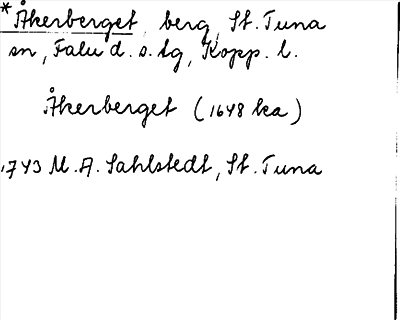 *Åkerberget, berg, St. Tuna
sn, Falu d. s. tg, Kopp. l.
Åkerberget (1648 ka)
1743 M. A. Sahlstedt, St. Tuna